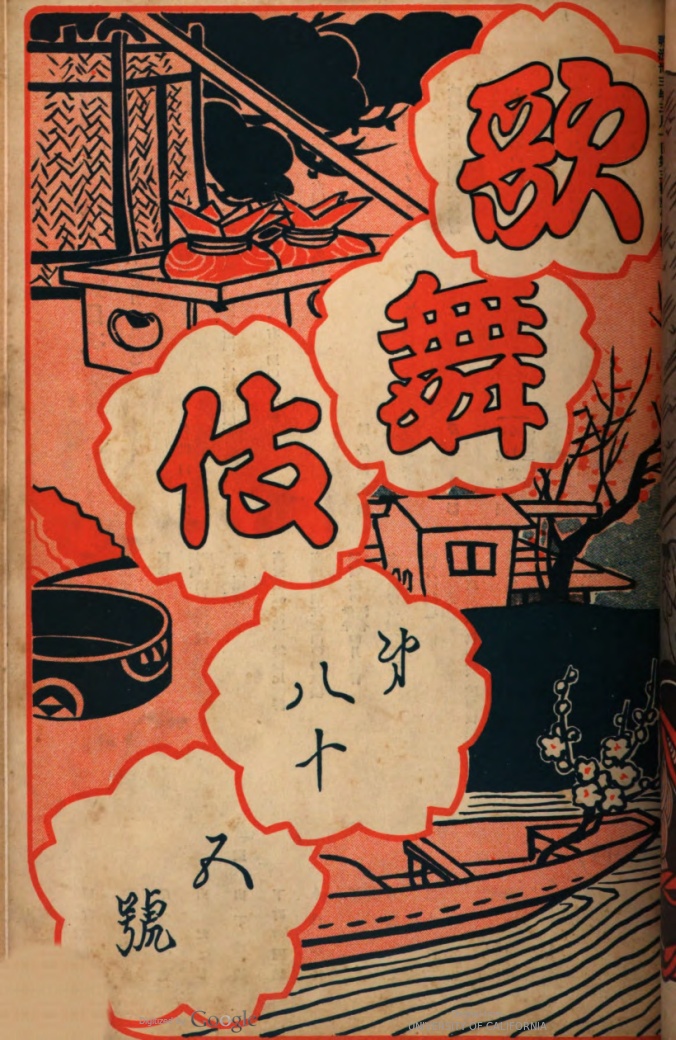 歌舞伎
第八十
五號
Digitized by Google
UNIVERSITY OF CALIFORNIA